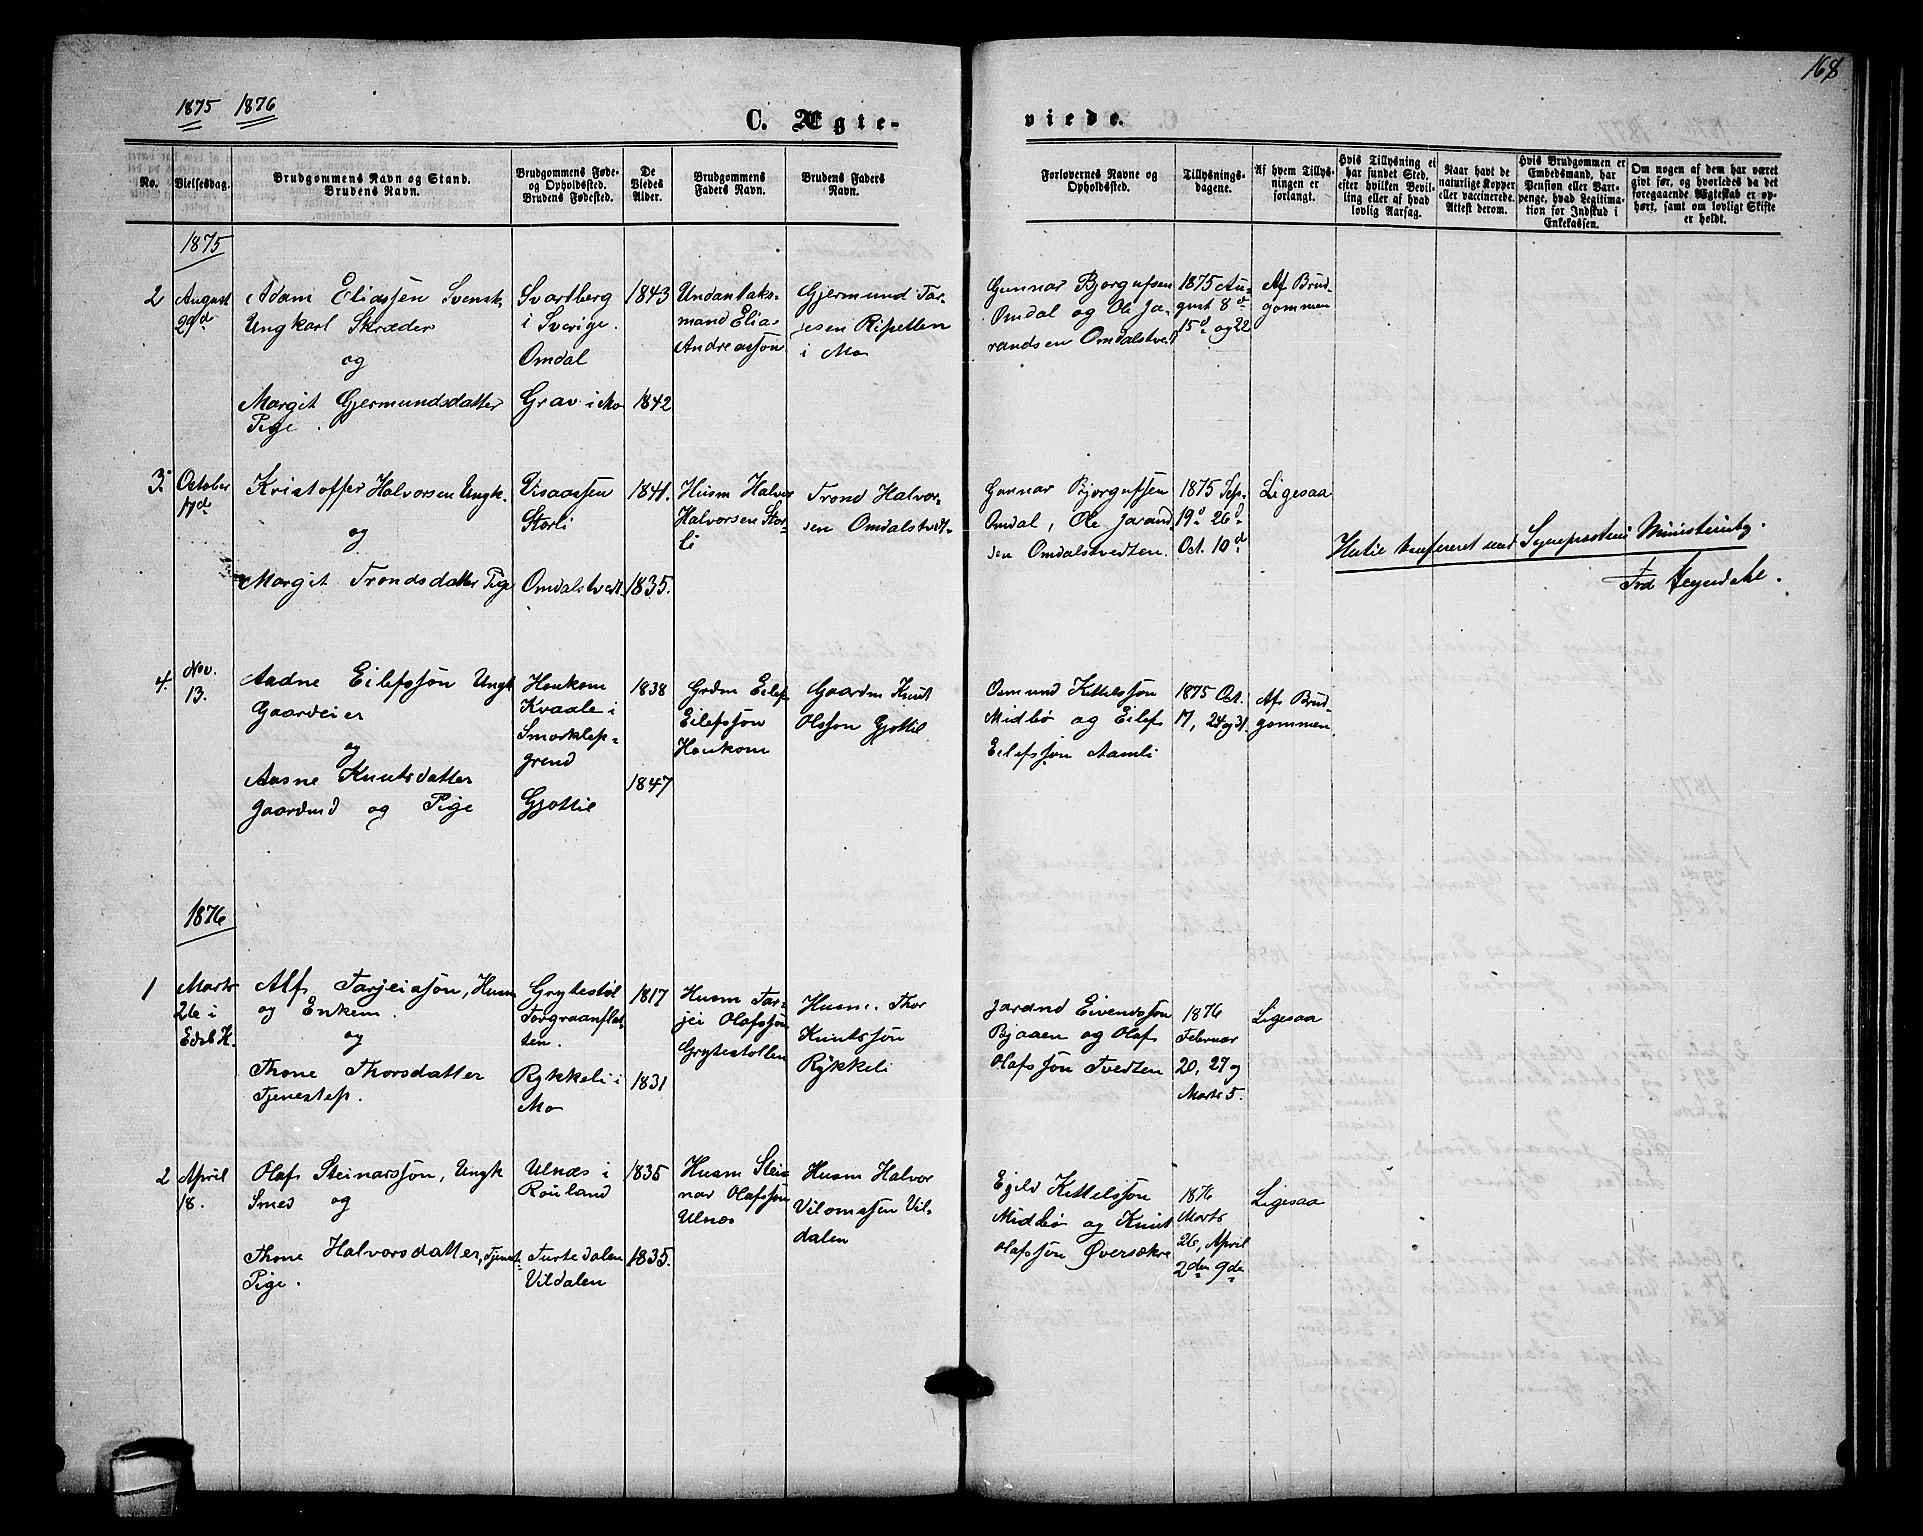 168
1875 1876
C. Ægte-
viede.
No.
Vielsesdag.
Brudgommens Navn og Stand.
Brudens Navn.
Brudgommens Føde-
og Opholdssted.
Brudens Fødested.
De
Viedes
Alder.
Brudgommens
Faders Navn.
Brudens Faders
Navn.
Forlovernes Navne og
Opholdssted.
Tillysnings-
dagene.
Af hvem Tillys-
ningen er
forlangt.
Hvis Tillysning ei
har fundet Sted,
efter hvilken Bevil-
ling eller af hvad
lovlig Aarsag.
Naar havt de
naturlige Kopper
eller vaccinerede.
Attest derom.
Hvis Brudgommen er
Embedsmand, har
Pension eller Vart-
penge, hvad Legitima-
tion for Indskud i
Enkekassen.
Om nogen af dem har været
givt før, og hvorledes da det
foregaaende Ægteskab er op-
hørt, samt om lovligt Skifte
er holdt.
1875
2
August
29de
Adam Eliassen Svensk,
Ungkarl Skræder
og
Margit Gjermundsdatter
Pige.
Svartberg
i Sverige.
Omdal
Grav i Mo
1843
1842
Undantaks-
mand Elias
Andreassøn
Gjermund Tar-
jesen Ripetlen
i Mo
Gunnar Bjørgufsen
Omdal og Ole Ja-
randsen Omdalstvedt
1875 Au-
gust 8d
15d og 22
Af Brud-
gommen
3.
October
17de
Kristoffer Halvorsen Ungk.
og
Margit Trondsdatter Pige
Visaassen
Storli
Omdalstvedt.
1841.
1835.
Husm Halvor
Halvorsen Stor-
li
Trond Halvor-
sen Omdalstvedt-
Gunnar Bjørgufsen
Omdal, Ole Jarand-
sen Omdalstvedten.
1875 Sep.
19d 26d
Oct. 10d
Ligesaa
4.
Nov.
13.
Aadne Eilefssøn Ungk
Gaardeier
og
Aasne Knutsdatter
Gaardmd og Pige
Houkom
Kvaale i
Smorklep-
grend
Gjottil
1838
1847
Grdm Eilef
Eilefssøn
Houkom
Gaardm Knut
Olsson Gjottil
Osmund Kittelssøn
Midbø og Eilef
Eilefssøn Aamli
1875 Oct.
17, 24 og 31.
Af Brud-
gommen.
1876
1
Marts
26 i
Eids K.
Alf Tarjeissøn, Husm
og Enkem.
og
Thone Thorsdatter
Tjenestep.
Grytestøl
Torgraanflat-
ten.
Rykkeli i
Mo
1817
1831
Husm Tar-
jei Olafssøn
Grytestollen
Husm. Thor
Knutssøn
Rykkeli
Jarand Eivendssøn
Bjaaen og Olaf
Olafssøn Tvedten
1876
Februar
20, 27 og
Marts 5.
Ligesaa
2
April
18.
Olaf Steinarssøn, Ungk
Smed og
Thone Halvorsdatter, Tjeneste-
Pige.
Ulnæs i
Rauland
Turtedalen
Vildalen
1835
1835.
Husm Stei-
nar Olafssøn
Ulnæs
Husm Halvor
Vilomssen Vil-
dalen
Egild Kittelssøn
Midbø og Knut
Olafssøn Øversækre
1876
Marts
26, April
2den 9de
Ligesaa